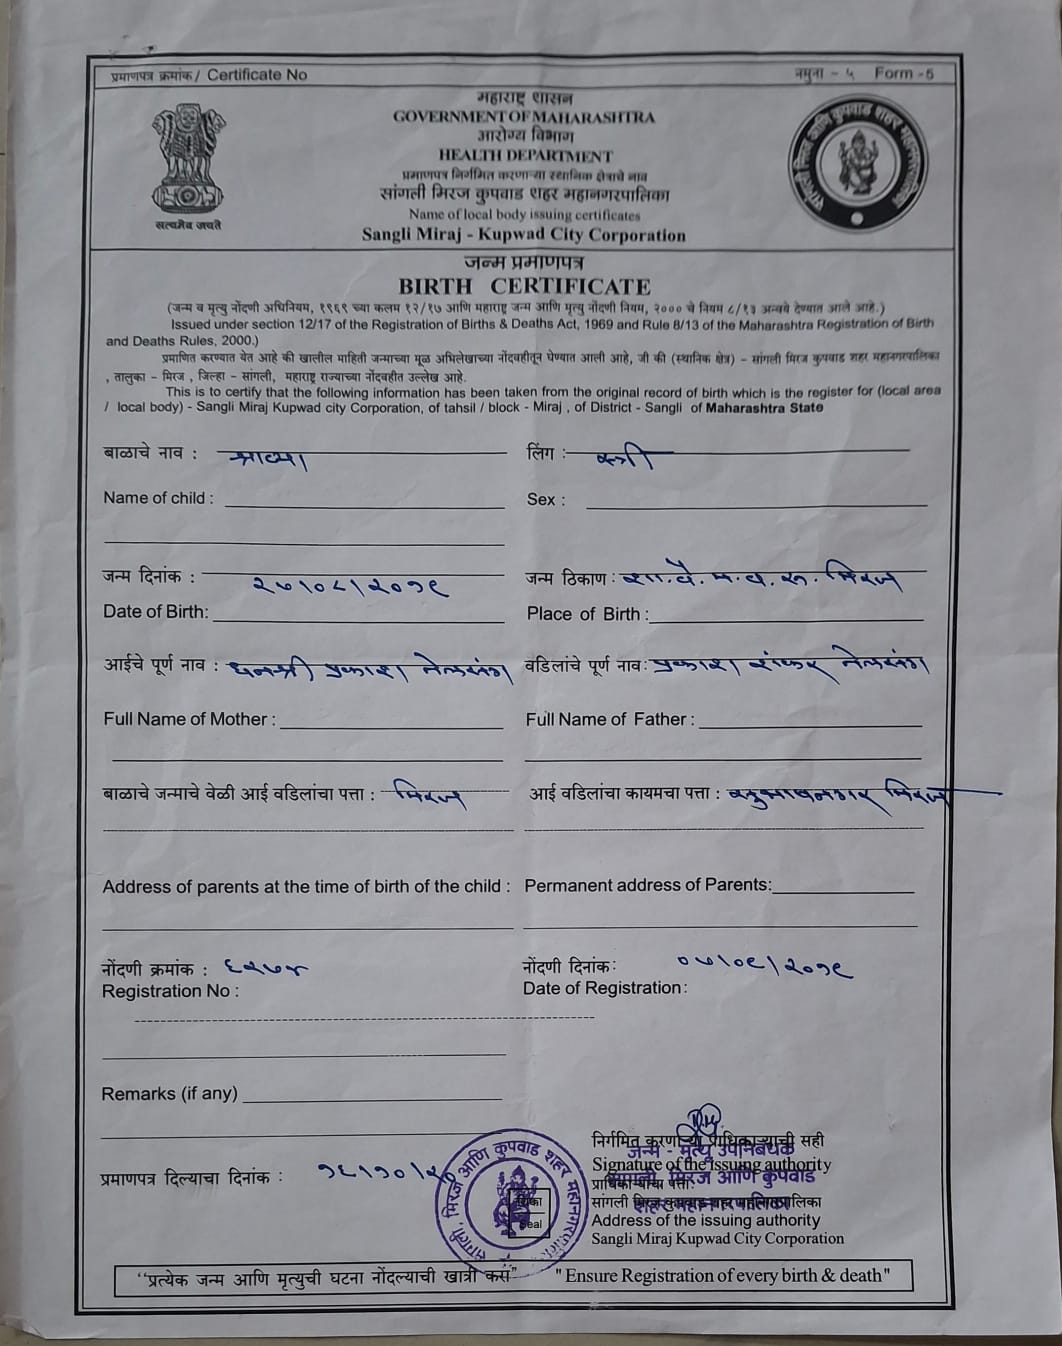 प्रमाणपत्र क्रमांक / Certificate No
नमुना - ५ Form -5
महाराष्ट्र शासन
GOVERNMENT OF MAHARASHTRA
आरोग्य विभाग
HEALTH DEPARTMENT
प्रमाणपत्र निर्गमित करणाऱ्या स्थानिक क्षेत्राचे नाव
सांगली मिरज कुपवाड शहर महानगरपालिका
Name of local body issuing certificates
Sangli Miraj - Kupwad City Corporation
सत्यमेव जयते
सांगली मिरज आणि कुपवाड शहर महानगरपालिका
जन्म प्रमाणपत्र
BIRTH CERTIFICATE
(जन्म व मृत्यु नोंदणी अधिनियम, १९६९ च्या कलम १२/१७ आणि महाराष्ट्र जन्म आणि मृत्यु नोंदणी नियम, २००० चे नियम ८/१३ अन्वये देण्यात आले आहे.)
Issued under section 12/17 of the Registration of Births & Deaths Act, 1969 and Rule 8/13 of the Maharashtra Registration of Birth
and Deaths Rules, 2000.)
प्रमाणित करण्यात येत आहे की खालील माहिती जन्माच्या मूळ अभिलेखाच्या नोंदवहीतून घेण्यात आली आहे, जी की (स्थानिक क्षेत्र) - सांगली मिरज कुपवाड शहर महानगरपालिका
, तालुका - मिरज , जिल्हा - सांगली, महाराष्ट्र राज्याच्या नोंदवहीत उल्लेख आहे.
This is to certify that the following information has been taken from the original record of birth which is the register for (local area
/ local body) - Sangli Miraj Kupwad city Corporation, of tahsil / block - Miraj , of District - Sangli of Maharashtra State
बाळाचे नाव : श्राव्या लिंग : स्त्री
Name of child : Sex :
जन्म दिनांक : २७/०८/२०१९ जन्म ठिकाण : शा.वै.म.व.रू. मिरज
Date of Birth: Place of Birth :
आईचे पूर्ण नाव : धनश्री प्रकाश वडिलांचे पूर्ण नाव: प्रकाश शंकर
Full Name of Mother : Full Name of Father :
बाळाचे जन्माचे वेळी आई वडिलांचा पत्ता : मिरज आई वडिलांचा कायमचा पत्ता : मिरज
Address of parents at the time of birth of the child : Permanent address of Parents:
नोंदणी क्रमांक : ६२७४ नोंदणी दिनांक: ०७/०९/२०१९
Registration No : Date of Registration:
Remarks (if any)
निर्गमित करणाऱ्या प्राधिकाऱ्याची सही
जन्म - मृत्यु उपनिबंधक
Signature of the issuing authority
सांगली, मिरज आणि कुपवाड
प्रमाणपत्र दिल्याचा दिनांक : १६/१०/२० प्राधिकाऱ्याचा पत्ता:
सांगली मिरज कुपवाड शहर महानगरपालिका
शहर महानगरपालिका
Address of the issuing authority
Sangli Miraj Kupwad City Corporation
सांगली, मिरज आणि कुपवाड शहर महानगरपालिका
Seal
“प्रत्येक जन्म आणि मृत्युची घटना नोंदल्याची खात्री करा” "Ensure Registration of every birth & death"